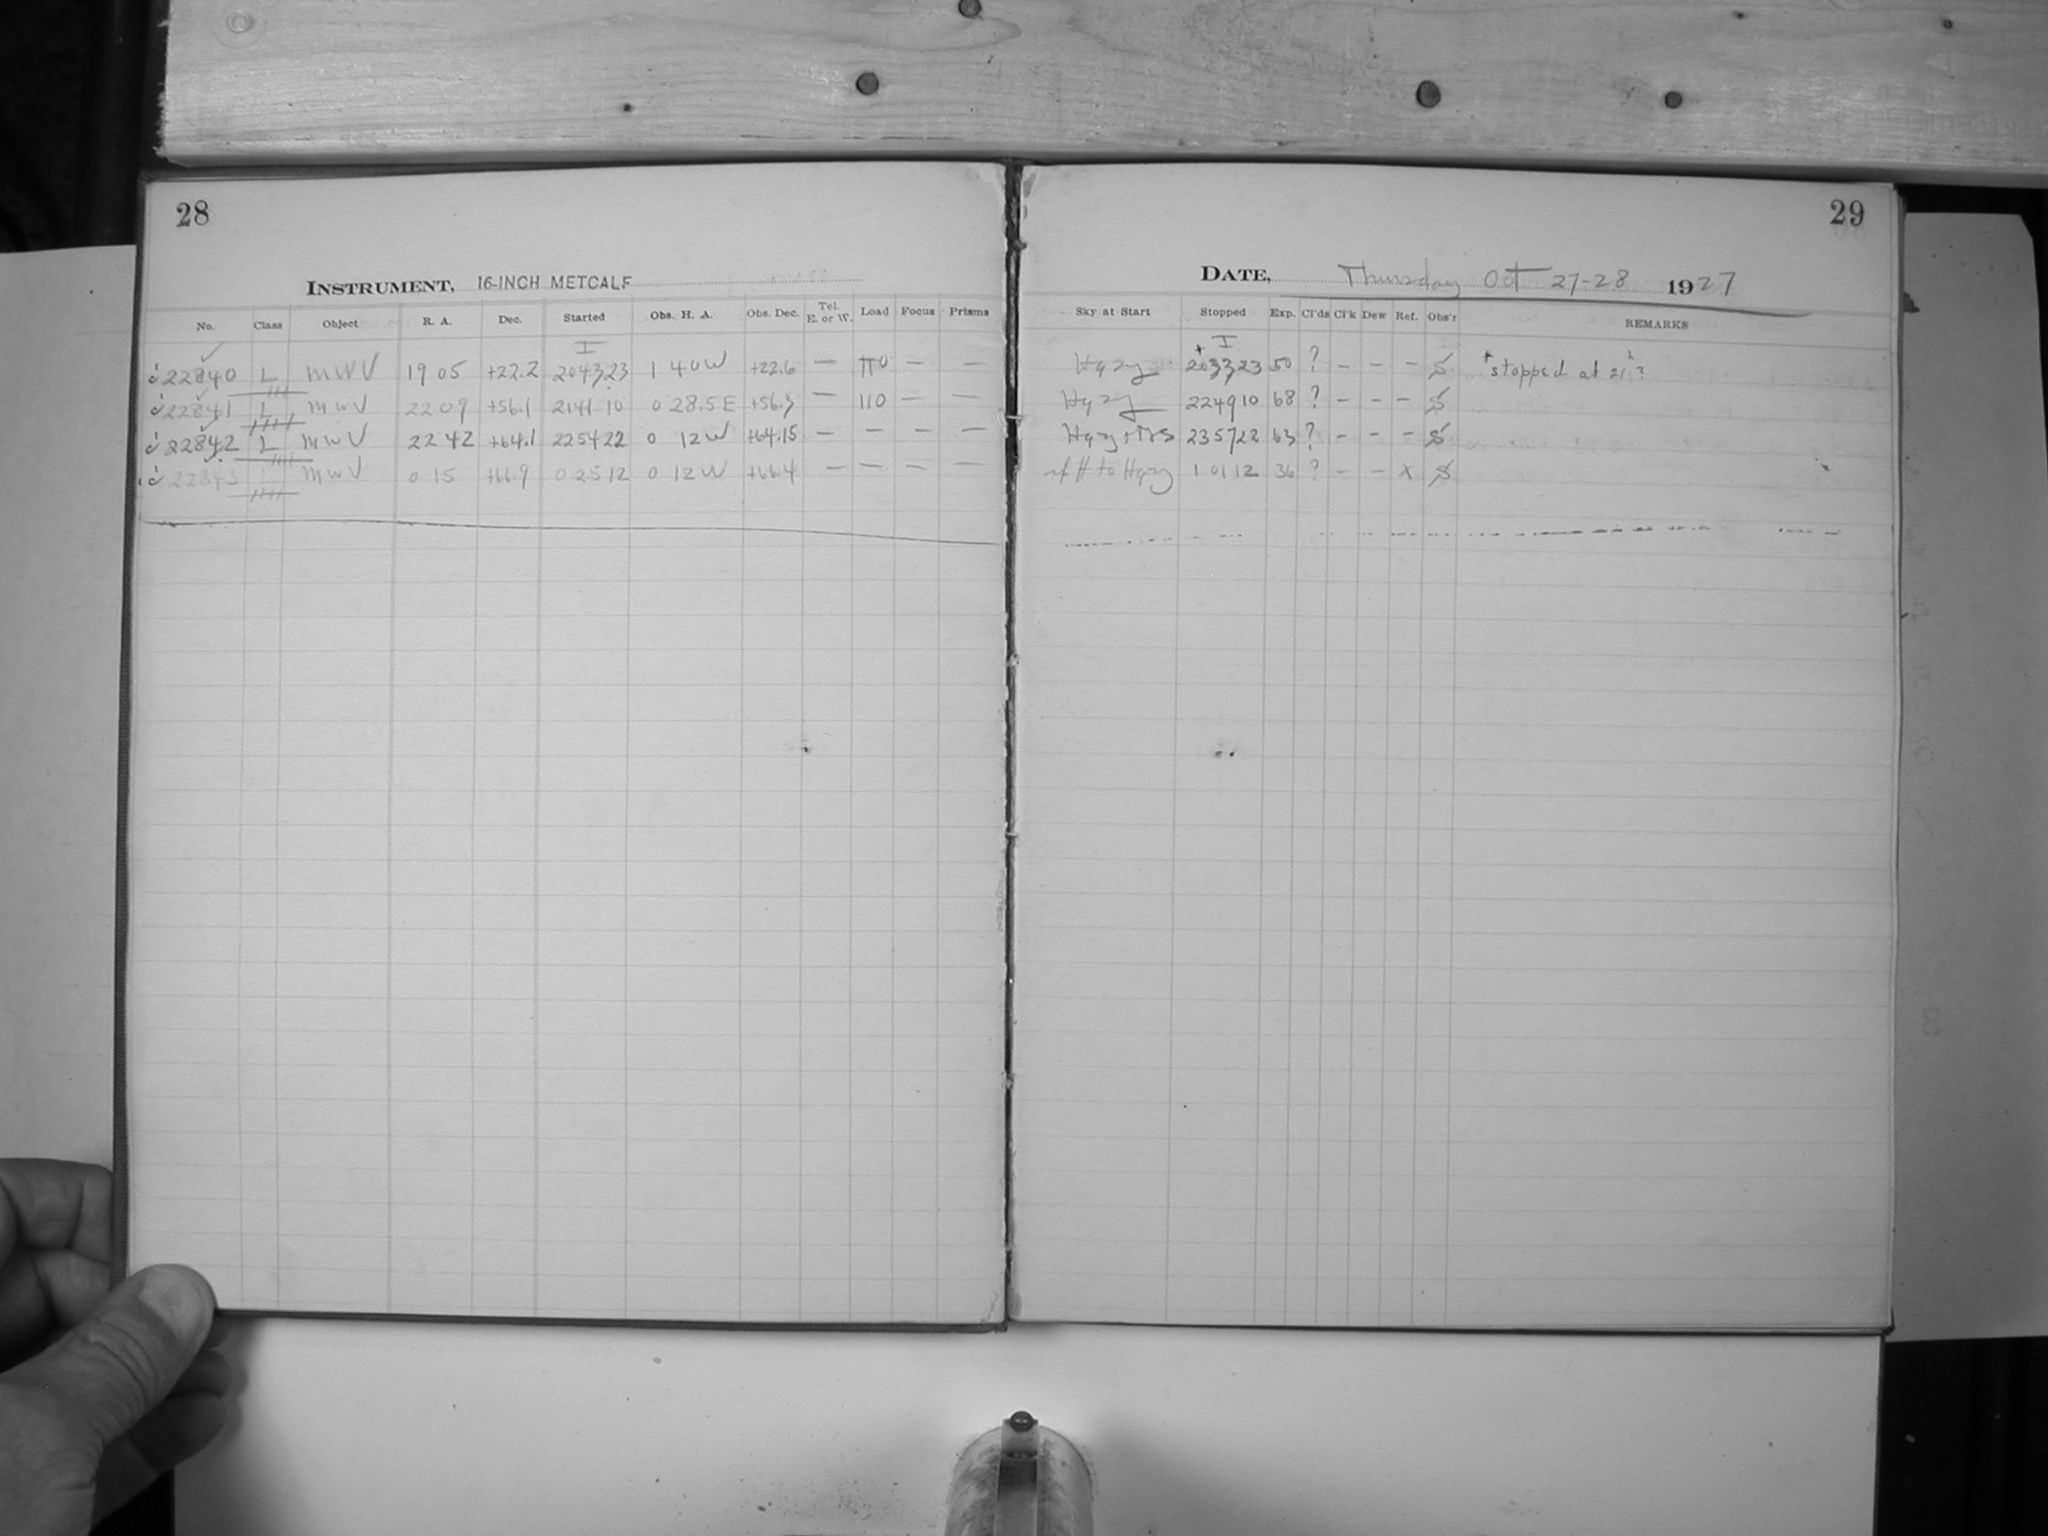 28
INSTRUMENT, 16-INCH METCALF
No. Class Object R. A. Dec. Started Obs. H. A. Obs. Dec. Tel. E. or W. Load Focus Prisms
I
22840 L MWV 19 05 +22.2 204323 1 40W +22.6 — 110 — —
22841 L MWV 22 09 +56.1 214110 0 28.5E +56.3 — 110 — —
22842 L MWV 22 42 +64.1 225422 0 12W +64.15 — — — —
22843 L MWV 0 15 +66.9 0 25 12 0 12W +66.4 — — — —
29
DATE, Thursday Oct 27-28 1927
Sky at Start Stopped Exp. Cl'ds Cl'k Dew Ref. Obs'r REMARKS
I
Hazy 203323 50 ? – – – S *stopped at 21h?
Hazy 224910 68 ? – – – S
235722 63 ? – – – S
H to Hazy 1 01 12 36 ? – – x S